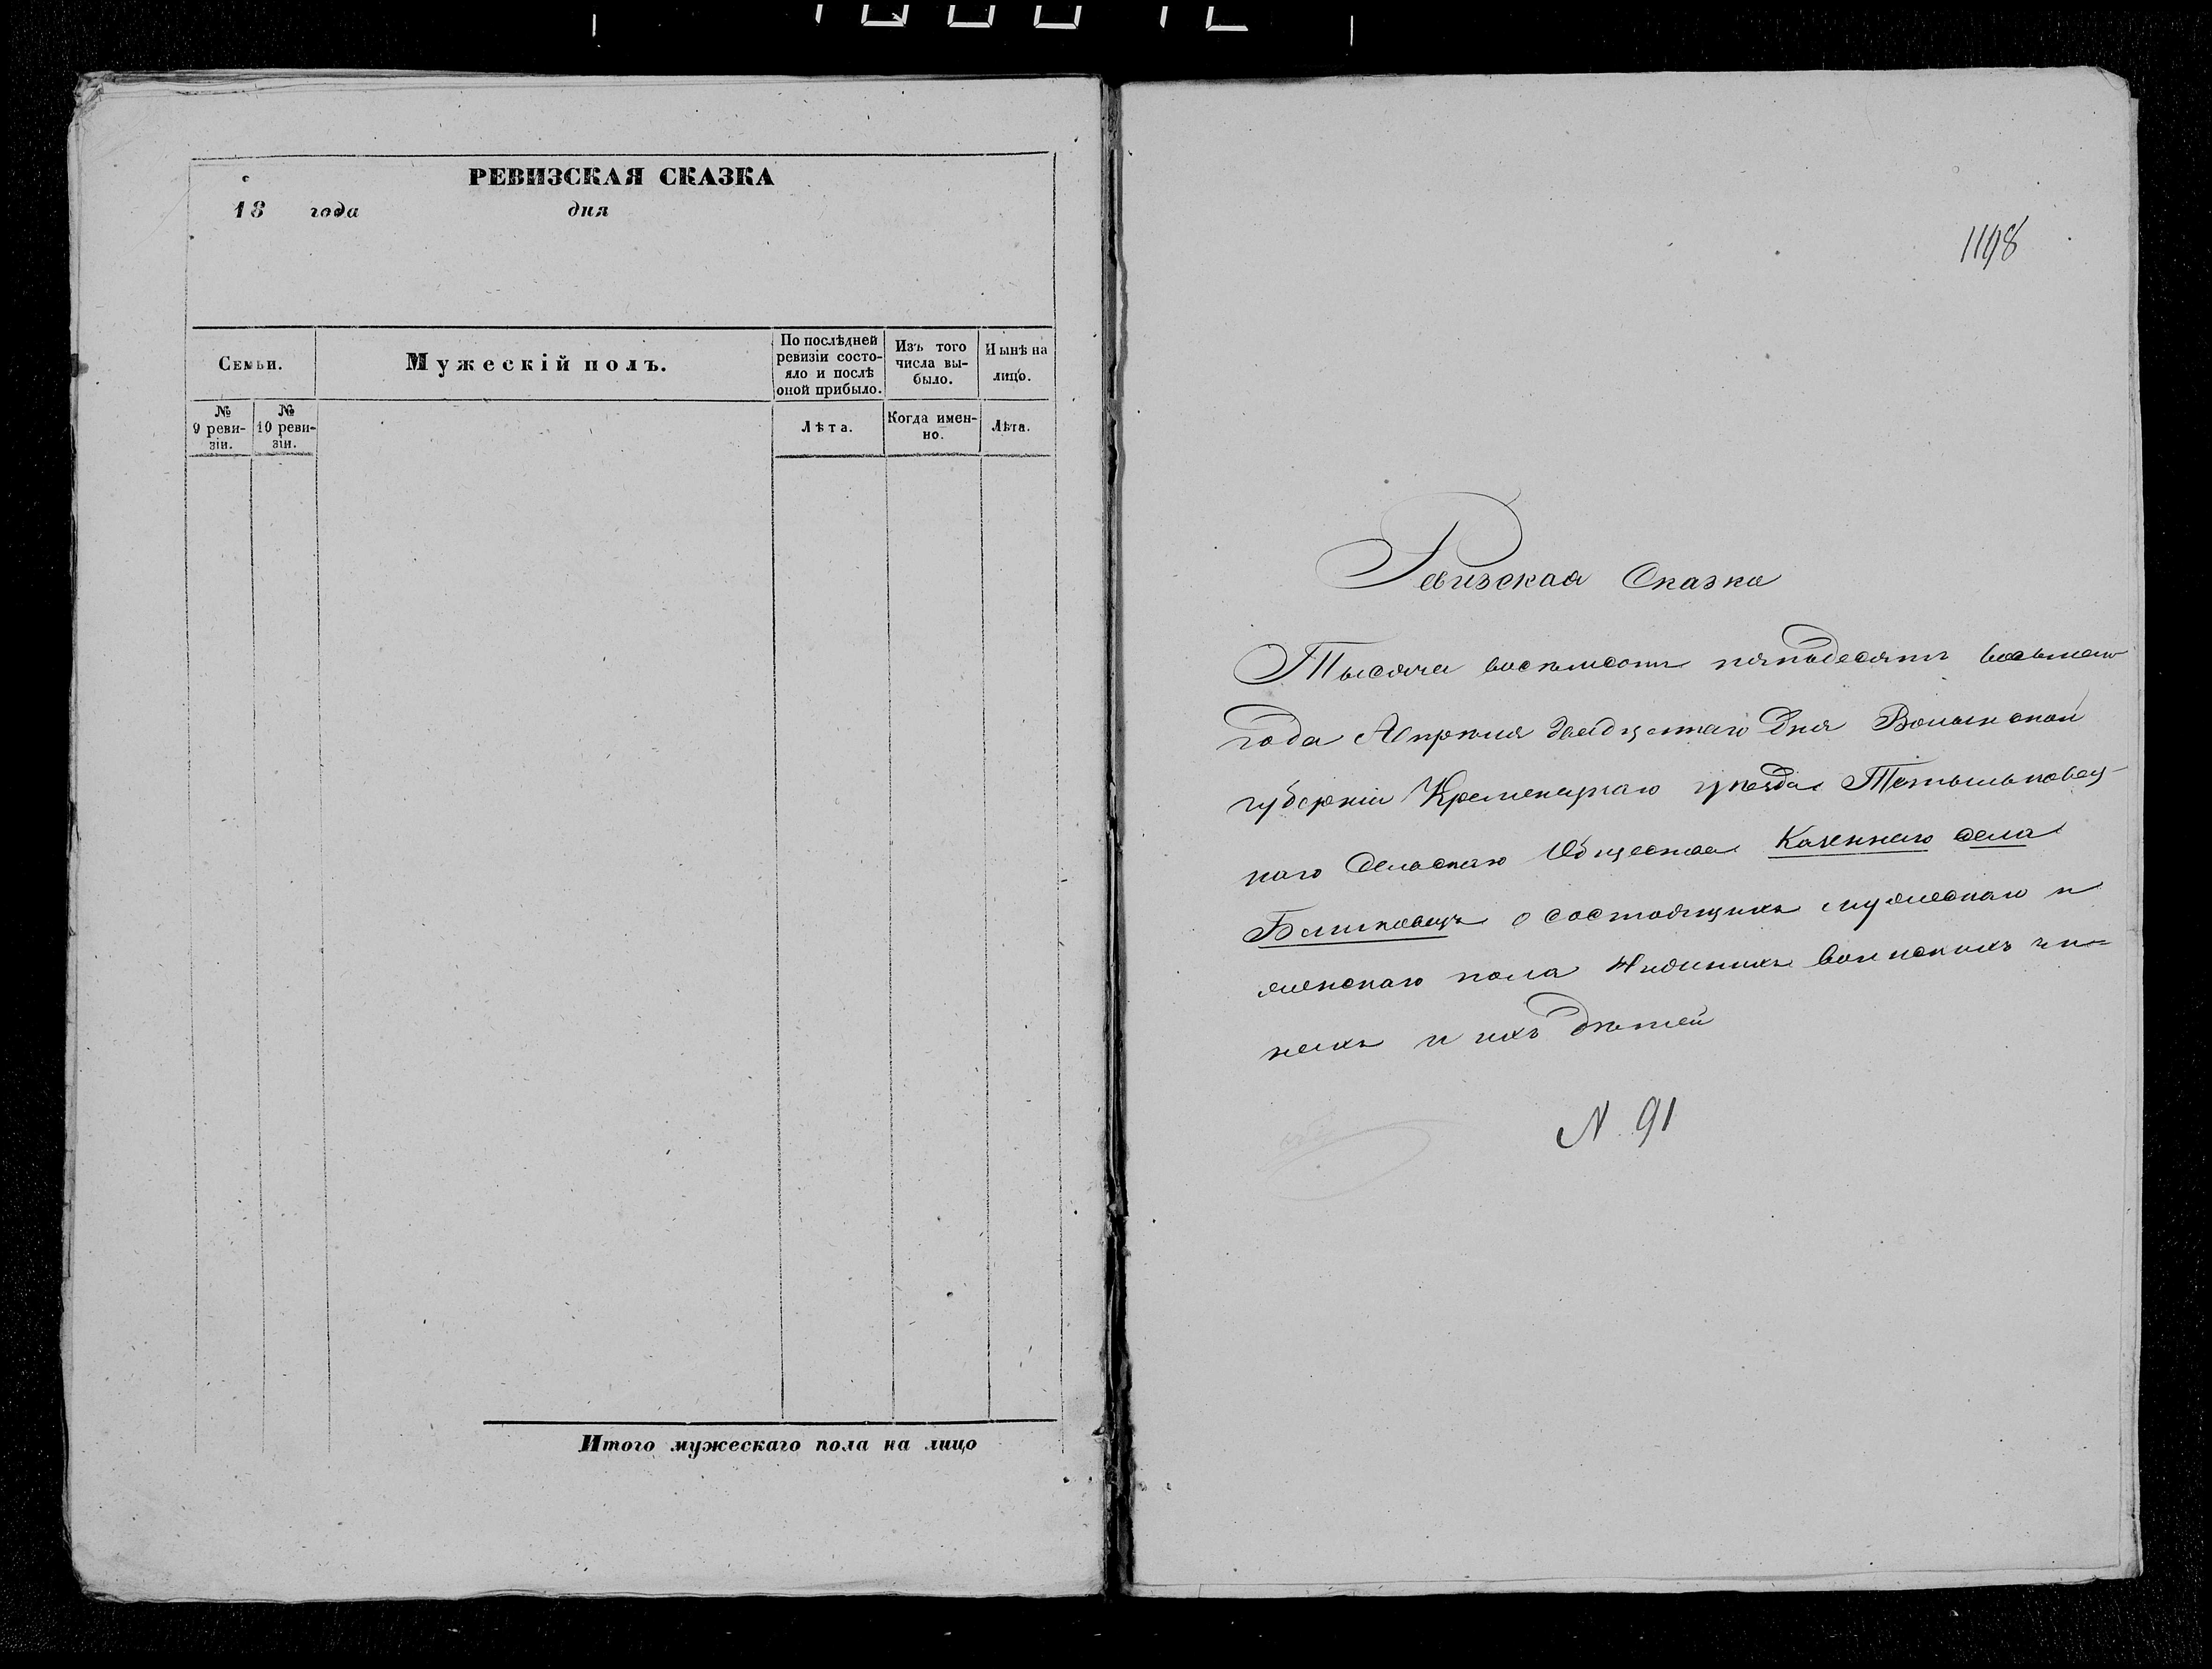 РЕВИЗСКАЯ СКАЗКА
18 года дня
Семьи.
Мужескій полъ.
По послѣдней ревизіи состо-яло и послѣ оной прибыло.
Изъ того числа вы-было.
Нынѣ на лицо.
№ 9 реви-зіи.
№ 10 реви-зіи.
Лѣта.
Когда имен-но.
Лѣта.
Итого мужескаго пола на лицо
1198
Ревизская Сказка
Тысяча восемьсотъ пятьдесятъ восьмаго
года Апрѣля двадцятаго Дня Волынской
губерніи Кременецкаго уѣзда
каго Сельскаго Общества Казеннаго села
о состоящихъ мужескаго и
женскаго пола Нижнихъ воинскихъ чи=
нахъ и ихъ дѣтей
N. 91